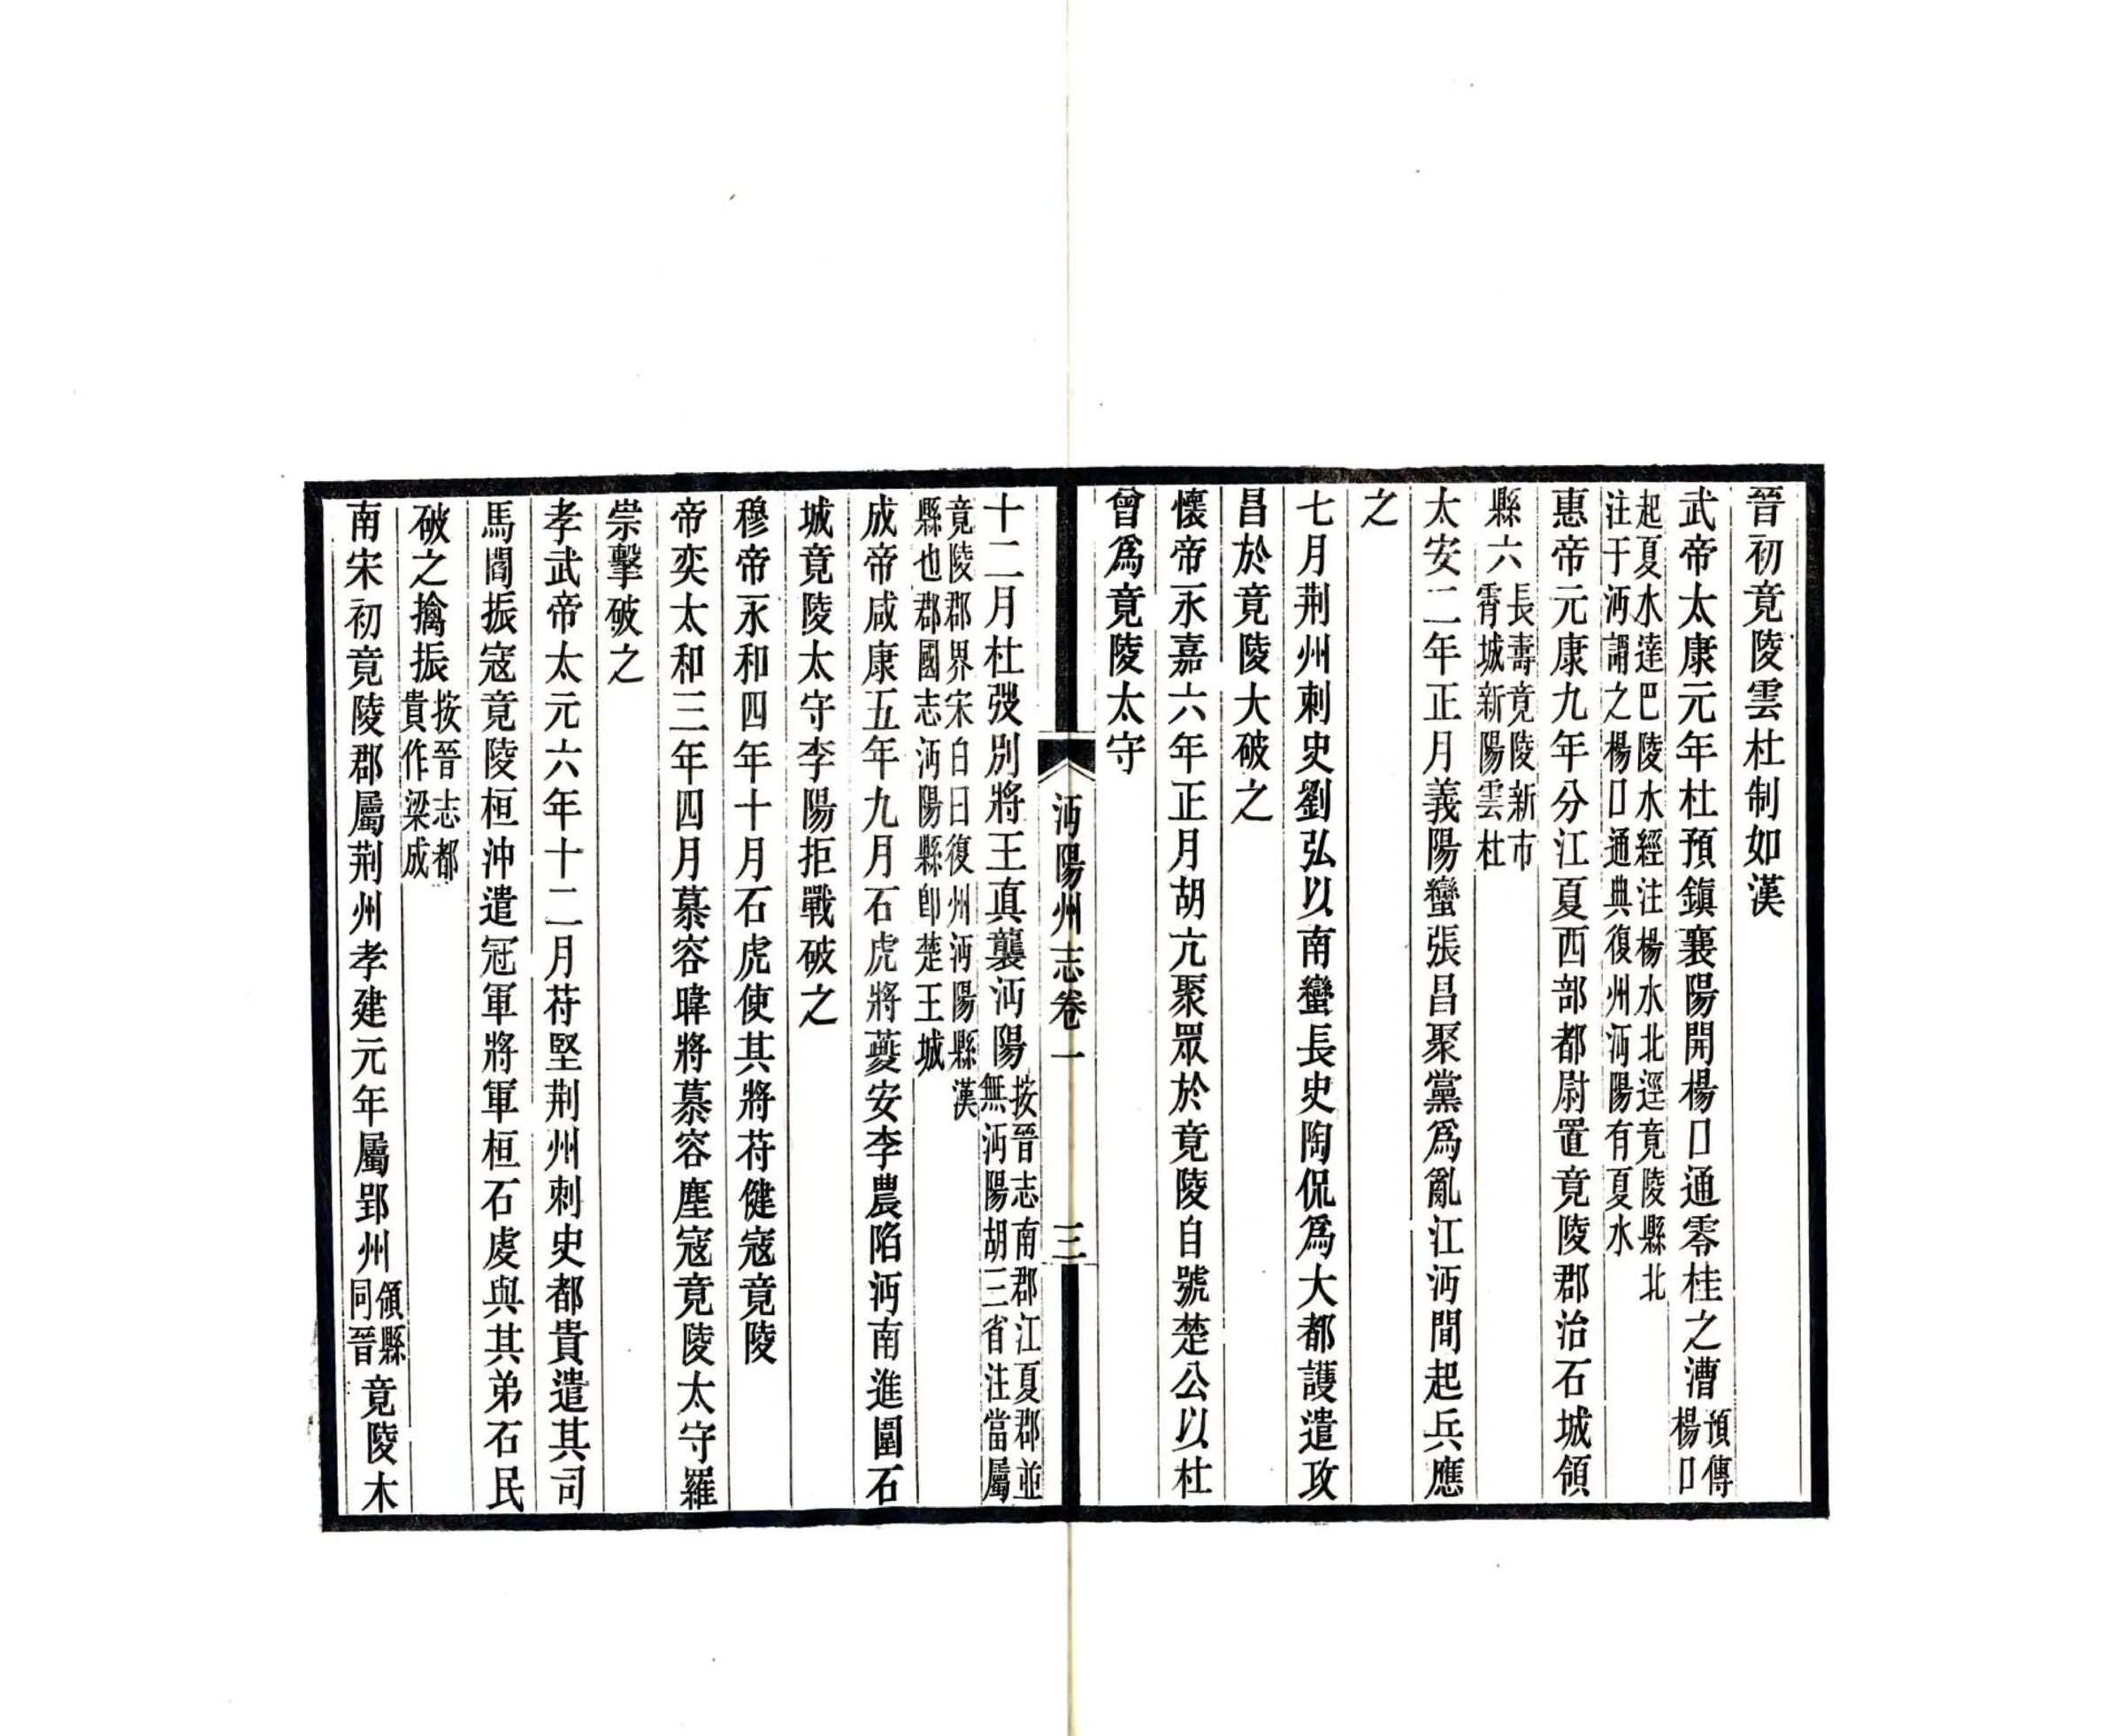 晉初竟陵雲杜制如漢
武帝太康元年杜預鎮襄陽開楊口通零桂之漕預傳楊口
起夏水達巴陵水經注楊水北逕竟陵縣北
注于沔謂之楊口通典復州沔陽有夏水
惠帝元康九年分江夏西部都尉置竟陵郡治石城領
縣六長壽竟陵新市霄城新陽雲杜
太安二年正月義陽蠻張昌聚黨爲亂江沔間起兵應
之
七月荆州刺史劉弘以南蠻長史陶侃爲大都護遣攻
昌於竟陵大破之
懷帝永嘉六年正月胡亢聚眾於竟陵自號楚公以杜
曾爲竟陵太守
沔陽州志卷一 三
十二月杜弢別將王真襲沔陽按晉志南郡江夏郡並無沔陽胡三省注當屬
竟陵郡界宋白曰復州沔陽縣漢
縣也郡國志沔陽縣卽楚王城
成帝咸康五年九月石虎將夔安李農陷沔南進圍石
城竟陵太守李陽拒戰破之
穆帝永和四年十月石虎使其將苻健寇竟陵
帝奕太和三年四月慕容暐將慕容塵寇竟陵太守羅
崇擊破之
孝武帝太元六年十二月苻堅荆州刺史都貴遣其司
馬閻振寇竟陵桓沖遣冠軍將軍桓石虔與其弟石民
破之擒振按晉志都貴作梁成
南宋初竟陵郡屬荆州孝建元年屬郢州領縣同晉竟陵木